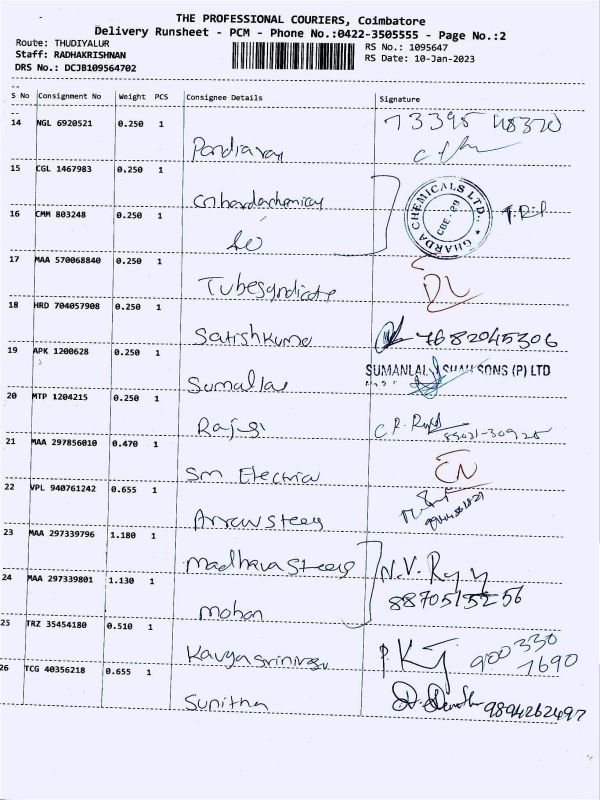 THE PROFESSIONAL COURIERS, Coimbatore
Delivery Runsheet - PCM - Phone No.:0422-3505555 - Page No.:2
Route: THUDIYALUR
RS No.: 1095647
Staff: RADHAKRISHNAN
RS Date: 10-Jan-2023
DRS No.: DCJB109564702
S No Consignment No Weight PCS Consignee Details Signature
14 NGL 6920521 0.250 1 73395 48320
Pandiaraj
15 CGL 1467983 0.250 1
GHARDA CHEMICALS LTD., CBE-29
16 CMM 803248 0.250 1
17 MAA 570068840 0.250 1
Tubesyndicate
18 HRD 704057908 0.250 1
Satishkuma 7682045306
19 APK 1200628 0.250 1
SUMANLAL J SHAH SONS (P) LTD
Sumallal
20 MTP 1204215 0.250 1
Rajgi
21 MAA 297856010 0.470 1
Sm Electrica
22 VPL 940761242 0.655 1
Arrow steey
23 MAA 297339796 1.180 1
Madhava steey
24 MAA 297339801 1.130 1 8870515256
Mohan
25 TRZ 35454180 0.510 1 900330
Kavyasrinivas 7690
26 TCG 40356218 0.655 1
Sunitha 9894262497